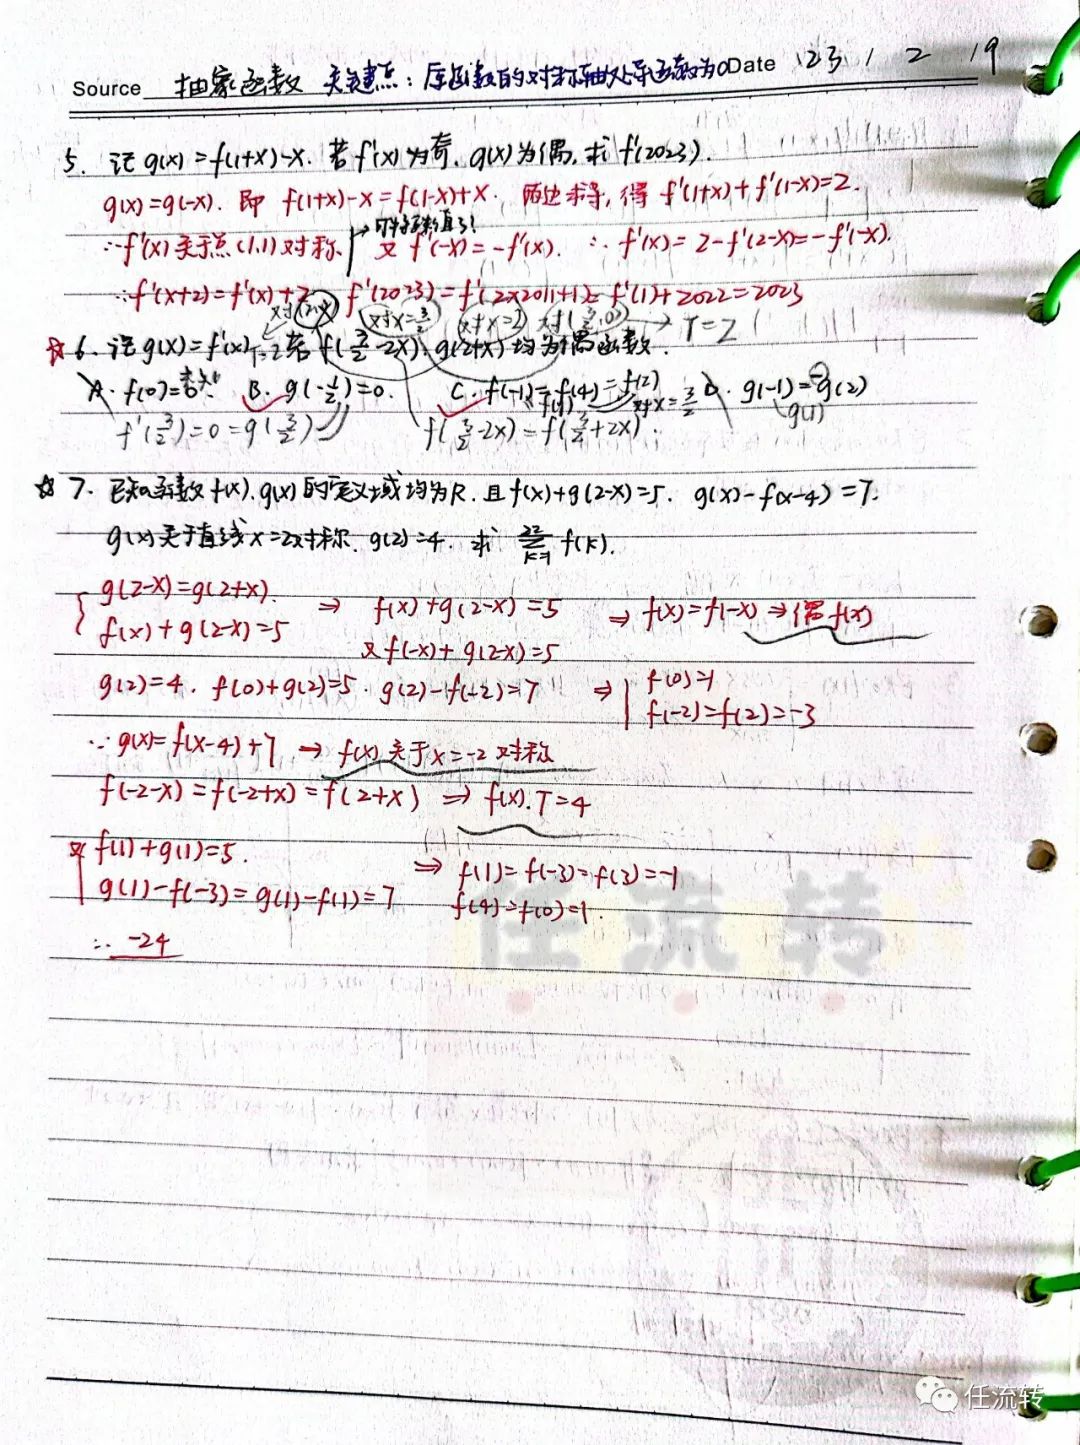 Source 抽象函数 关键点:原函数的对称轴处导函数为0 Date 23 1 2 19
5. 记g(x)=f(1+x)-x. 若f'(x)为奇, g(x)为偶, 求f'(2023).
g(x)=g(-x). 即 f(1+x)-x=f(1-x)+x. 两边求导, 得 f'(1+x)+f'(1-x)=2.
∴f'(x)关于点(1,1)对称. 又 f'(-x)=-f'(x). ∴ f'(x)=2-f'(2-x)=-f'(-x).
∴f'(x+2)=f'(x)+2 f'(2023)=f'(2×1011+1)=f'(1)+2022=2023
对x=3/2 对x=2 对(3/2,0) → T=2
☆6. 记g(x)=f'(x) T=2 若 f(3/2-2x), g(2+x)均为偶函数.
A. f(0)=0 B. g(-1/2)=0. C. f(-1)=f(4)=f(2) D. g(-1)=-g(2)
f(1) 对x=3/2 g(1)
f'(3/2)=0=g(3/2) f(3/2-2x)=f(3/2+2x).
☆7. 已知函数f(x), g(x)的定义域均为R, 且f(x)+g(2-x)=5. g(x)-f(x-4)=7.
g(x)关于直线x=2对称. g(2)=4. 求 22∑k=1 f(k).
g(2-x)=g(2+x).
f(x)+g(2-x)=5 ⇒ f(x)+g(2-x)=5 ⇒ f(x)=f(-x) ⇒ 偶f(x)
又f(-x)+g(2-x)=5
g(2)=4. f(0)+g(2)=5. g(2)-f(-2)=7 ⇒ f(0)=1
f(-2)=f(2)=-3
∵g(x)=f(x-4)+7 → f(x)关于x=-2对称
f(-2-x)=f(-2+x)=f(2+x) ⇒ f(x). T=4
又 f(1)+g(1)=5.
g(1)-f(-3)=g(1)-f(1)=7 ⇒ f(1)=f(-3)=f(3)=-1
f(4)=f(0)=1.
∴ -24
任流转
任流转